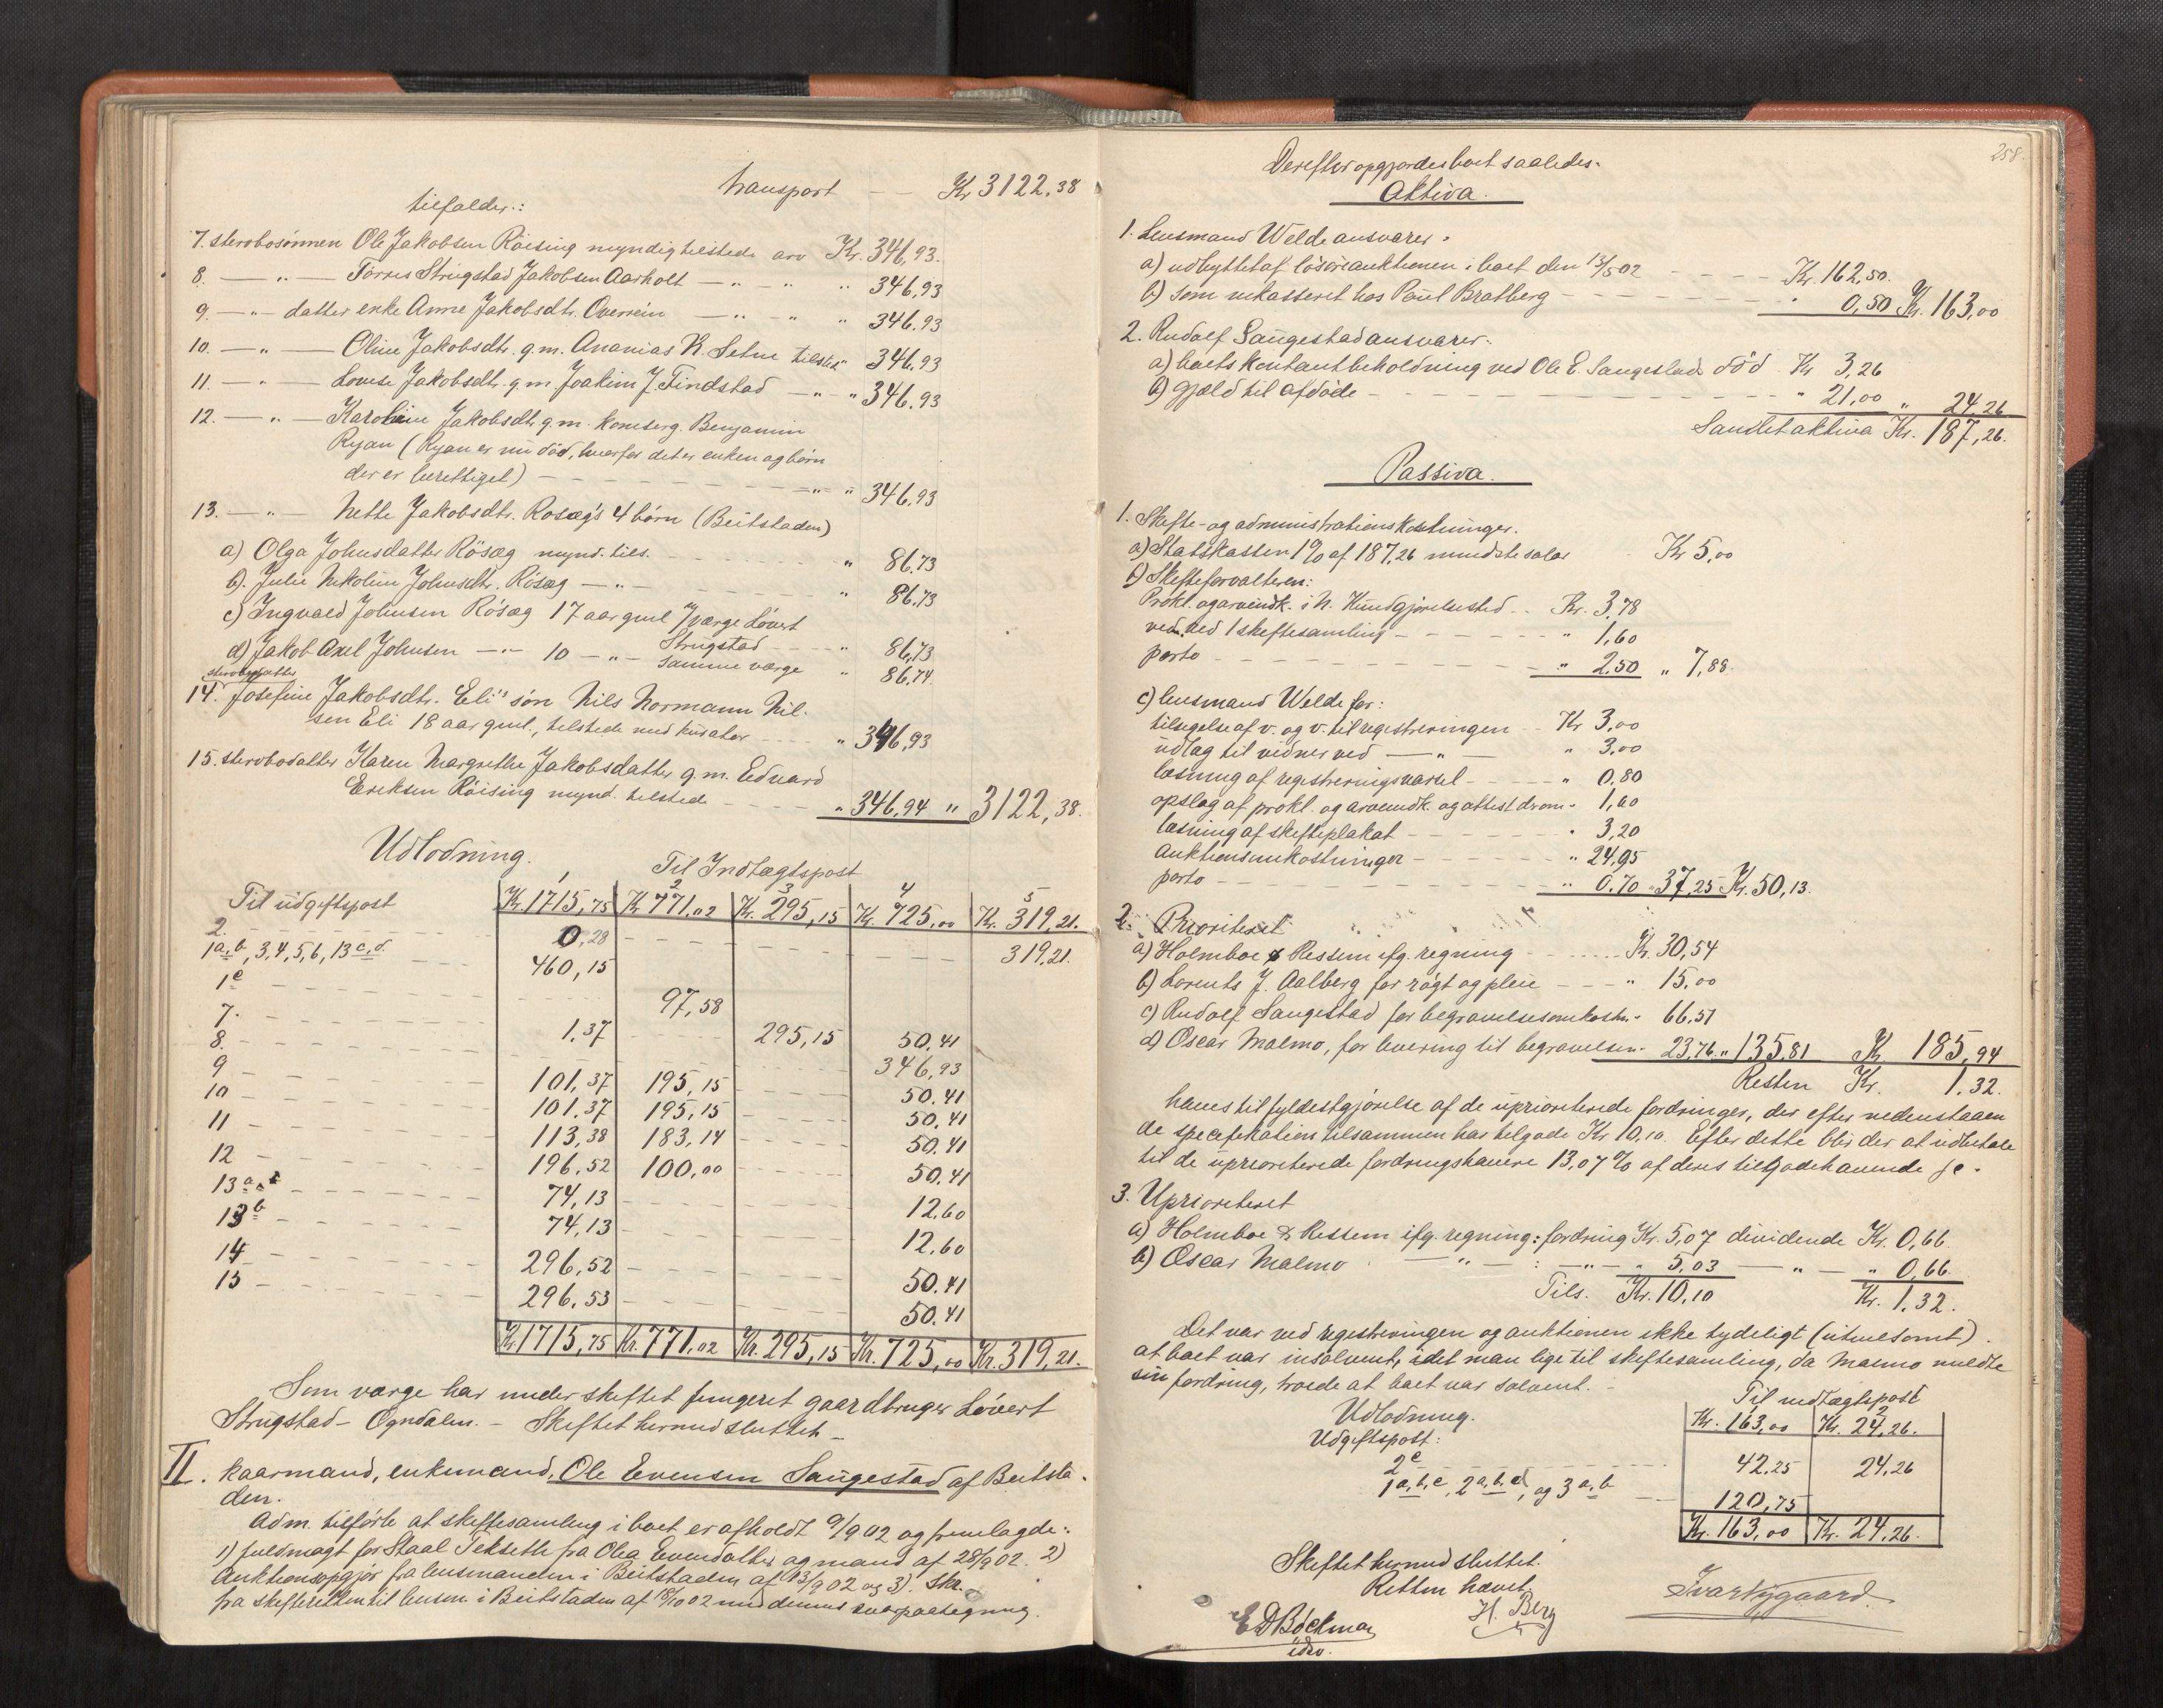 transport — — Kr 3122,38
tilfalder:
7. sterbosønnen Ole Jakobsen Röising myndig tilstede arv Kr. 346,93.
8. — " — Törris Strugstad Jakobsen Aarholt — " — " " 346,93
9. — " — datter enke Anne Jakobsdtr. Overrein — " — " " 346,93
10. — " — Oline Jakobsdtr. g.m. Ananias K. Setne tilsted. " 346,93
11. — " — Lovise Jakobsdtr. g.m. Joakim J. Findstad — " — " 346,93
12. — " — Karoline Jakobsdtr. g.m. konserg. Benjamin
Ryan (Ryan er nu död, hvorfor det er enken og börn
der er berettiget) — — — " " 346,93
13. — " — Nette Jakobsdtr. Rosæg's 4 börn (Beitstaden)
a) Olga Johnsdatter Rösæg mynd. tils. " 86,73
b). Julie Nikoline Johnsdtr. Rösæg — " — " 86,73
c) Ingvald Johnsen Rösæg 17 aar gml / værge Lövert
Strugstad - - - " 86,73
d) Jakob Axel Johnsen — " — 10 — " — samme værge " 86,74
sterbodatter
14. Josefine Jakobsdtr. Eli's sön Nils Normann Nil-
sen Eli 18 aar gml., tilstede med kurator - - - " 346,93
15. sterbodatter Karen Margrethe Jakobsdatter g.m. Edvard
Eriksen Röising mynd. tilstede - - - " 346,94 " 3122,38.
Udlodning.
Til Indtægtspost
Til udgiftspost
1 2 3 4 5
Kr. 1715,75 Kr 771,02 Kr. 295,15 Kr. 725,00 Kr. 319,21.
2. 0,28 319,21.
1a,b, 3,4,5,6, 13c,d. 460,15
1c 97,58
7. 1,37 295,15 50,41
8. 346,93
9 101,37 195,15 50,41
10 101,37 195,15 50,41
11 113,38 183,14 50,41
12 196,52 100,00 50,41
13a 74,13 12,60
13b 74,13 12,60
14 296,52 50,41
15 296,53 50,41
Kr 1715,75 Kr. 771,02 Kr. 295,15 Kr. 725,00 Kr. 319,21.
Som værge har under skiftet fungeret gaardbruger Lövert
Strugstad - Ogndalen. - Skiftet hermed sluttet -
II. Kaarmand, enkemand, Ole Evensen Saugestad af Beitsta-
den.
Adm. tilförte at skiftesamling i boet er afholdt 9/9 02 og fremlagde:
1) fuldmagt for Staal Tekseth fra Olea Evensdatter og mand af 28/9 02. 2)
Auktionsopgjör fra lensmanden i Beitstaden af 13/9 02 og 3). Skr.
fra skifteretten til lensm. i Beitstaden af 18/10 02 med dennes svarpaategning.
258.
Derefter opgjordes boet saaledes:
Aktiva.
1. Lensmand Welde ansvarer:
a) udbyttet af lösöreauktionen i boet den 13/5 02 - - - Kr. 162,50.
b) som inkasseret hos Paul Bratberg - - - " 0,50 Kr. 163,00
2. Rudolf Saugestad ansvarer:
a) boets kontantbeholdning ved Ole E. Saugestads död Kr 3,26
b) gjæld til afdöde - - - " 21,00 " 24,26
Samlet aktiva Kr. 187,26.
Passiva.
1. Skifte- og administrationskostninger.
a) Statskassen 1% af 187,26 mindste salær Kr 5,00
b) Skifteforvalteren:
Prokl. og arveindk. i N. Kundgjörelsestid. - - Kr. 3,78
vedn. ved 1 skiftesamling - - - " 1,60
porto - - - " 2,50 " 7,88.
c) lensmand Welde for:
tilsigelse af v. og v. til registreringen - - Kr 3,00
udlæg til vidner ved — " — " 3,00
læsning af registreringsvarsel - - - " 0,80
opslag af prokl. og arveindk. og attest derom - 1,60
læsning af skifteplakat - - - " 3,20
Auktionsomkostninger - - - " 24,95
porto - - - " 0,70 " 37,25 Kr. 50,13.
2. Prioriteret
a) Holmboe & Ressem ifg. regning - - - Kr. 30,54
b) Lorents J. Aalberg for rögt og pleie - - - " 15,00
c) Rudolf Saugestad for begravelsesomkostn. - 66,51
d) Oscar Malmo, for levering til begravelsen - 23,76 " 135,81 Kr 185,94
Resten Kr. 1,32.
haves til fyldestgjörelse af de uprioriterede fordringer, der efter nedenstaaen
de specifikation tilsammen har tilgode Kr 10,10. Efter dette blir der at udbetale
til de uprioriterede fordringshavere 13,07 % af deres tilgodehavende
3. Uprioriteret
a) Holmboe & Ressem ifg. regning: fordring Kr. 5,07 dividende Kr. 0,66.
b) Oscar Malmo — " — : — " — " 5,03 — " — " 0,66.
Tils. Kr. 10,10 Kr. 1,32.
Det var ved registreringen og auktionen ikke tydeligt (utvilsomt).
at boet var insolvent, idet man lige til skiftesamling, da Malmo meldte
sin fordring, troede at boet var solvent. -
Til indtægtspost
Udlodning. 1 2
Udgiftspost: Kr. 163,00 Kr. 24,26.
2c 42,25 24,26
1a,b,c, 2a,b,d, og 3a,b 120,75
Kr. 163,00 Kr. 24,26.
Skiftet hermed sluttet.
Retten hævet.
Ivar Nygaard.
H. Berg
E D Böckman